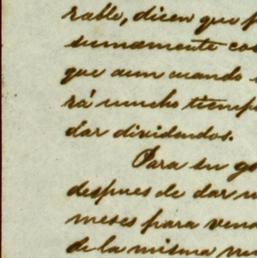 rable, dicen que
sumamente
que aun cuando
rá mucho tiempo
dar dividendos.
Para su
despues de dar
meses para
de la misma